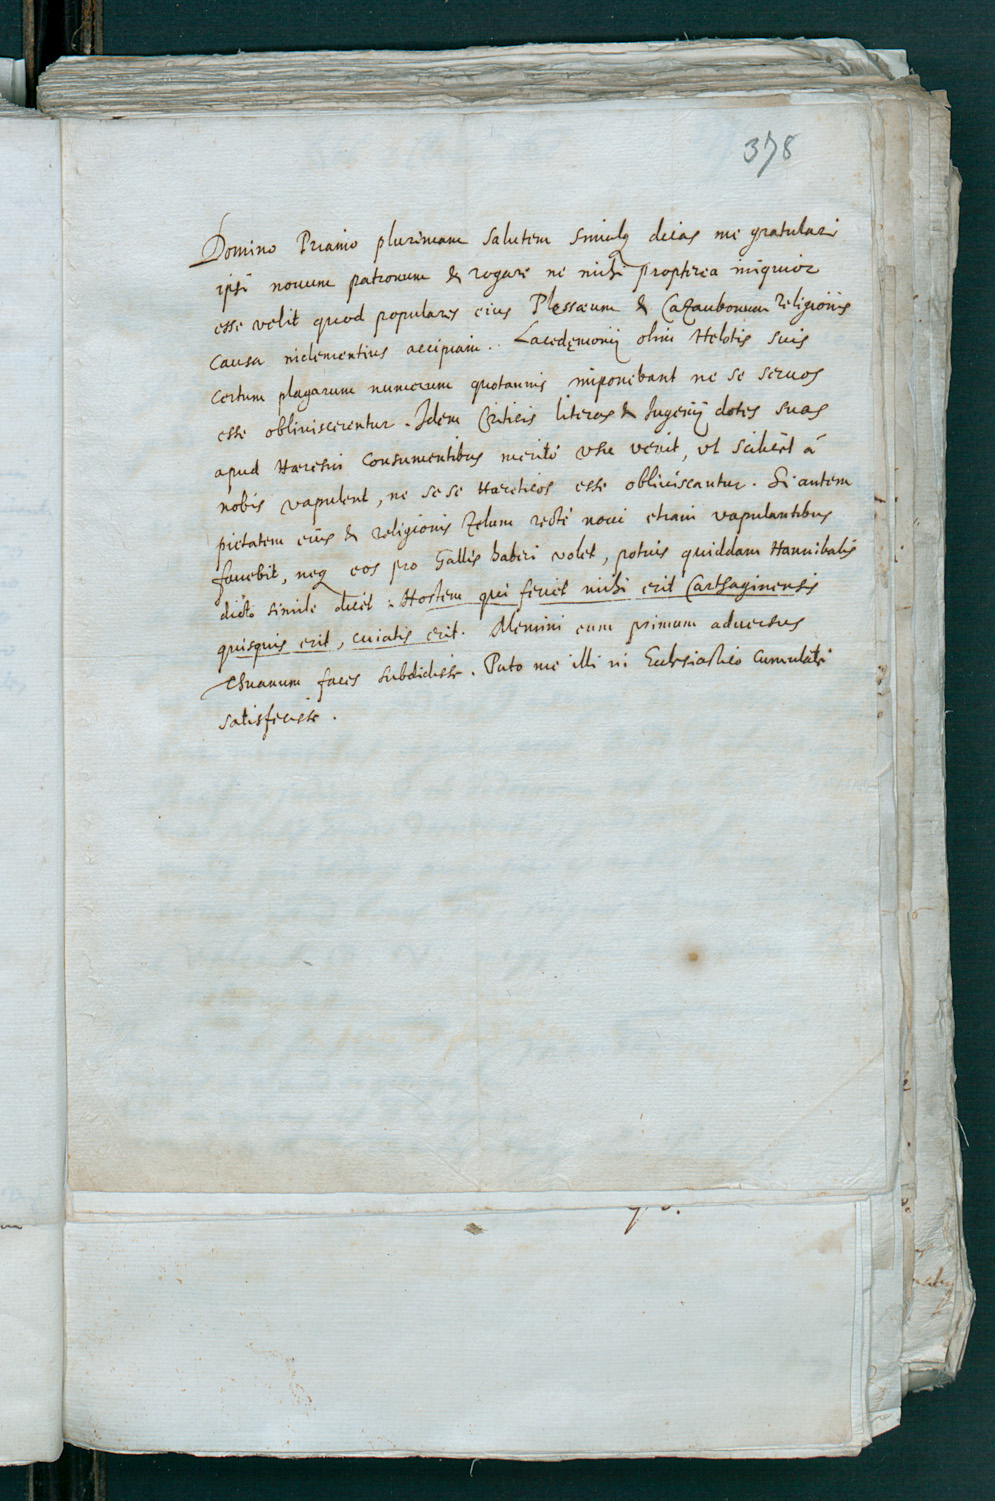 378
Domino Priamo plurimam salutem simulq dicas me gratulari
ipsi nouum patronum & rogare ne mihi propterea iniquior
esse velit quod populares eius Plessæum & Cazaubonum religionis
causa inclementius accipiam. Lacedęmonij olim Helotis suis
certum plagarum numerum quotannis imponebant ne se seruos
esse obliuiscerentur. Idem Criticis literas & Ingenij dotes suas
apud Hæresim consumentibus meritò vsu venit, vt scilicet à
nobis vapulent, ne sese Hæreticos esse obliuiscantur. Si autem
pietatem eius & religionis zelum rectè noui etiam vapulantibus
fauebit, neq eos pro Gallis haberi volet, potius quiddam Hannibalis
dicto simile dicet: Hostem qui feriet mihi erit Carthaginensis
quisquis erit, cuiatis erit. Memini eum primum aduersus
Thuanum faces subdidisse. Puto me illi in Ecclesiastico cumulatè
satisfecisse.